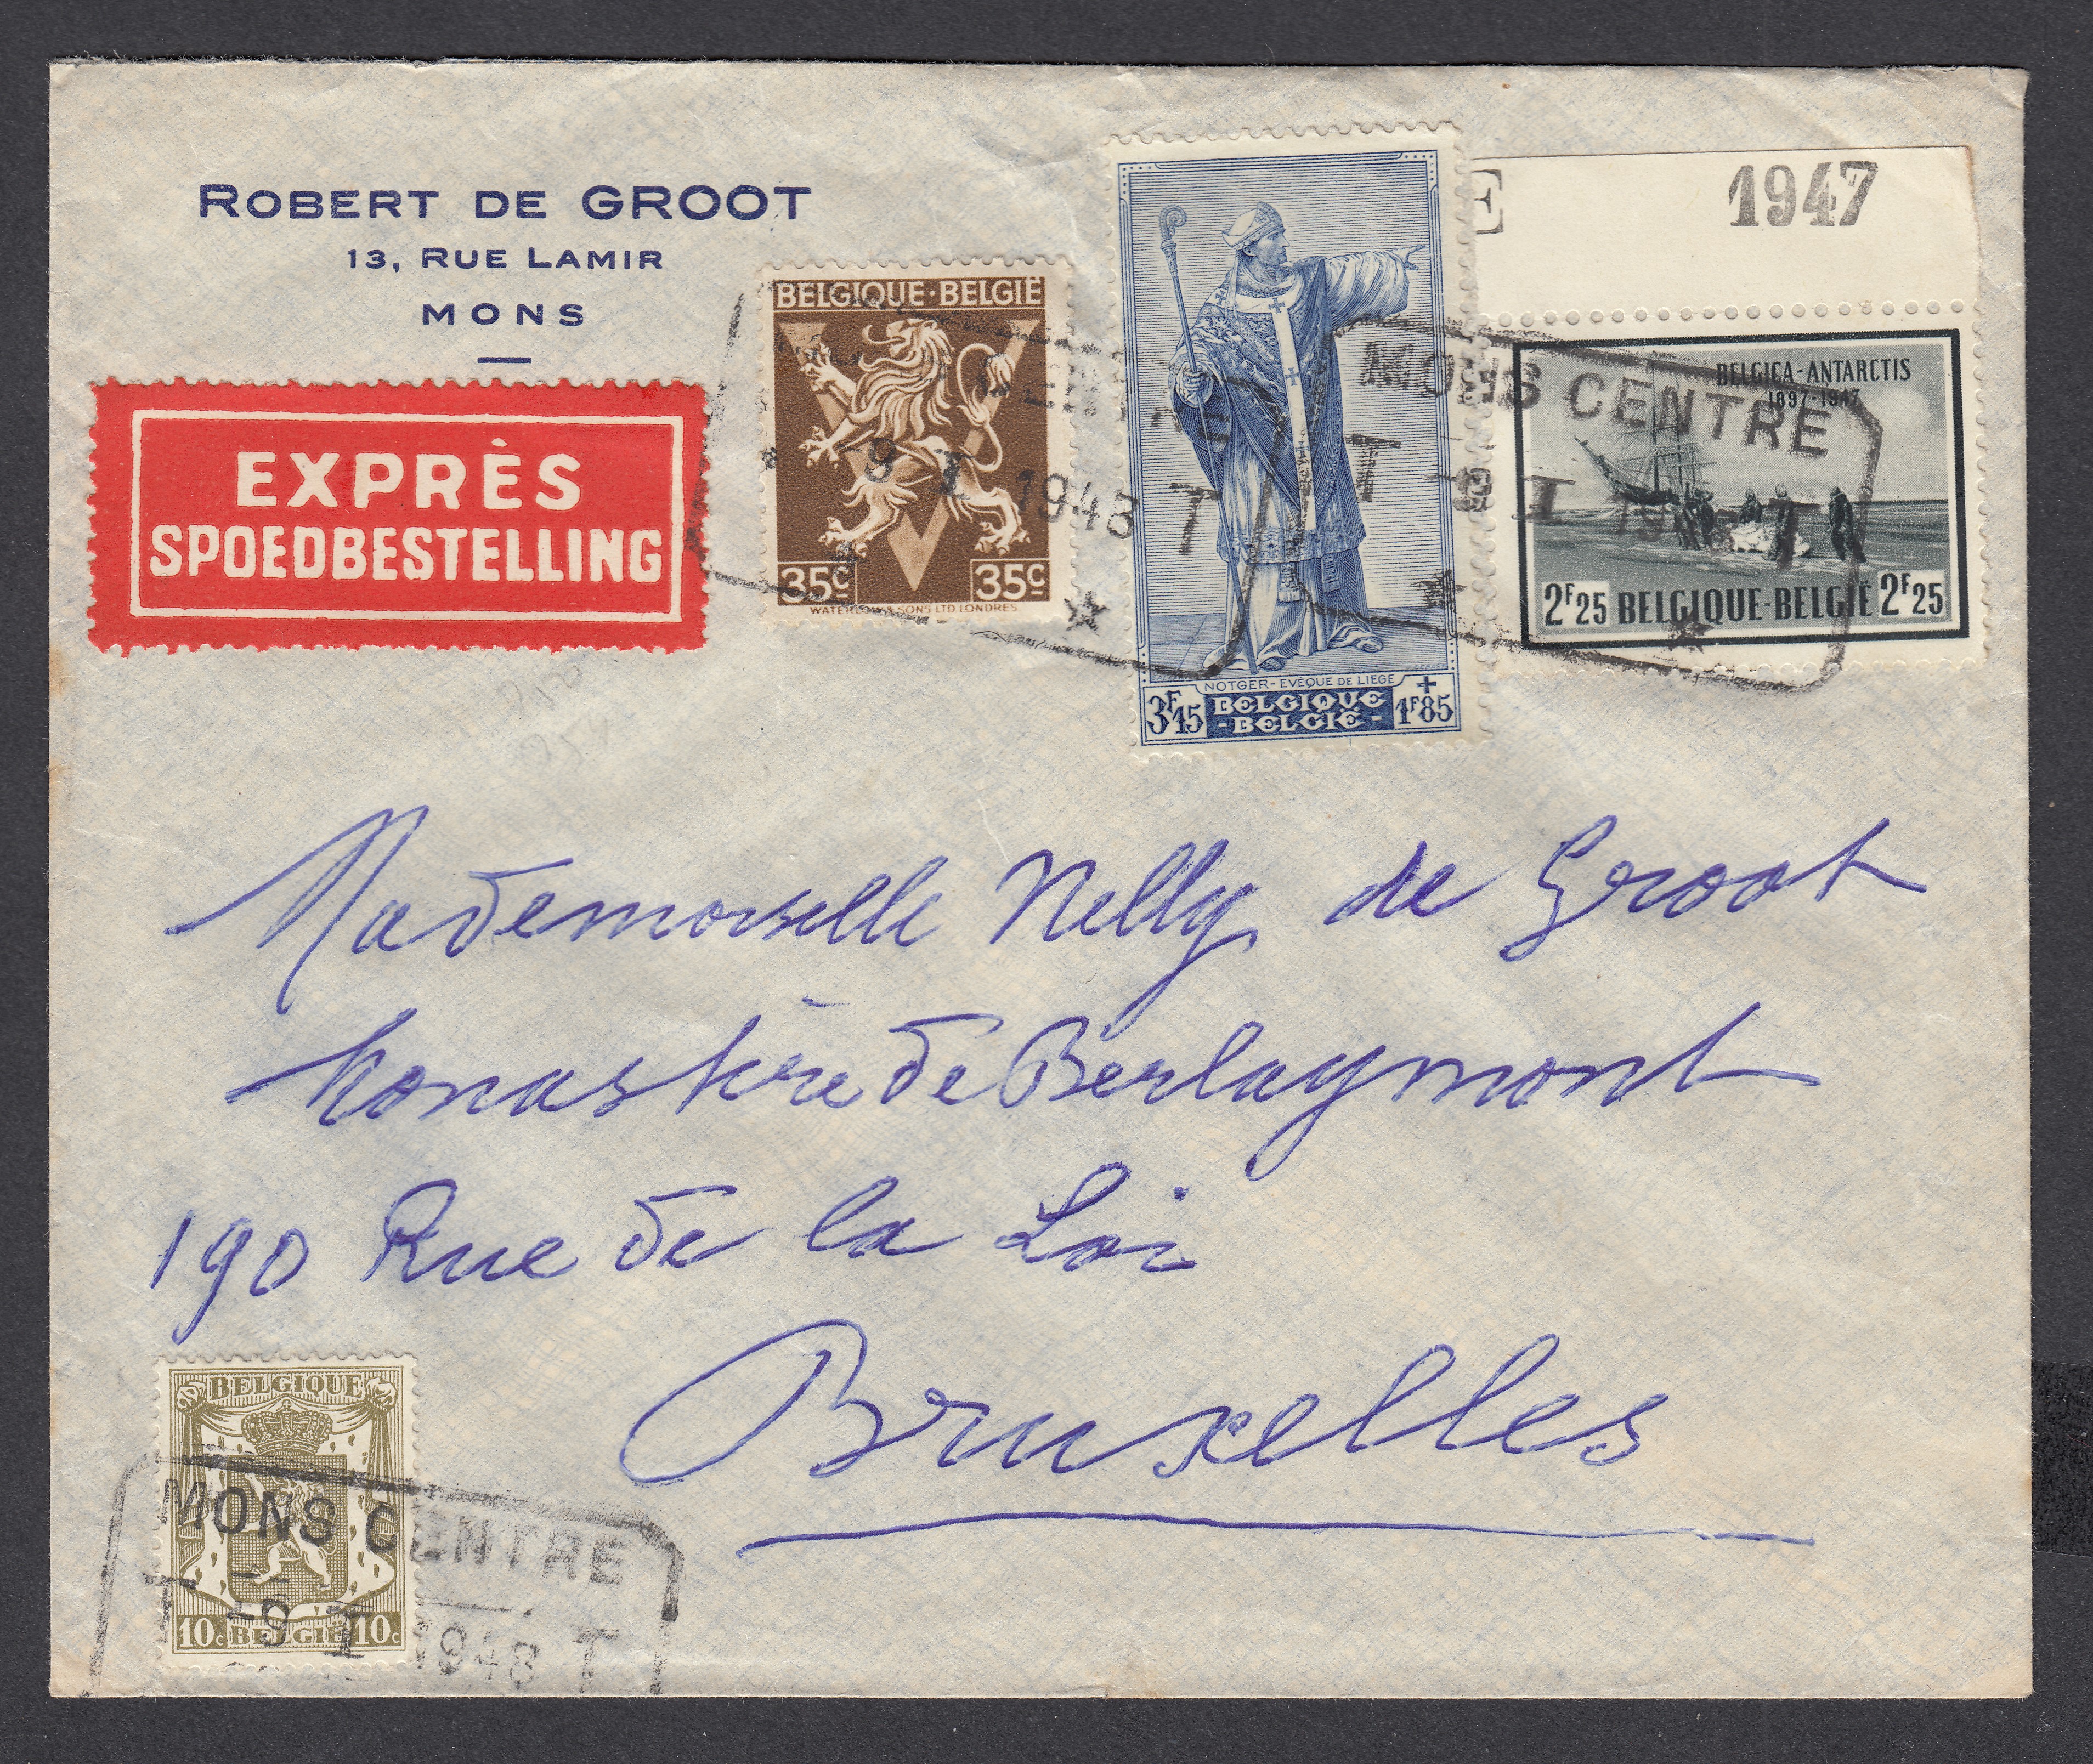 ROBERT DE GROOT
13, RUE LAMIR
MONS
EXPRÈS
SPOEDBESTELLING
BELGIQUE·BELGIË
35c 35c
WATERLOW & SONS LTD LONDRES
NOTGER-EVÊQUE DE LIEGE
3F15 BELGIQUE -BELGIË- +1F85
E 1947
BELGICA-ANTARCTIS
1897-1947
2F25 BELGIQUE-BELGIË 2F25
CENTRE
9 I 1948 T
MONS CENTRE
T -9 I 1948 T
Mademoiselle Nelly de Groot
Monastère de Berlaymont
190 Rue de la Loi
Bruxelles
BELGIQUE
10c BELGIË 10c
MONS CENTRE
-9 I 1948 T